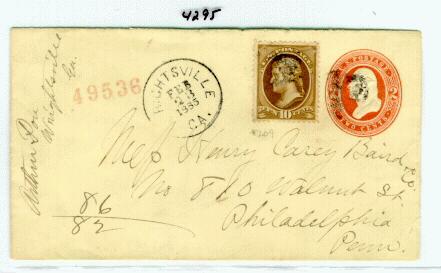 4295
Arthur
Wrightsville
Ga.
49536
WRIGHTSVILLE
FEB
23
1885
GA.
10
U.S. POSTAGE
TWO CENTS
2
#209
Mess Henry Carey Baird & Co.
No 810 Walnut St.
Philadelphia
Penn.
86
82